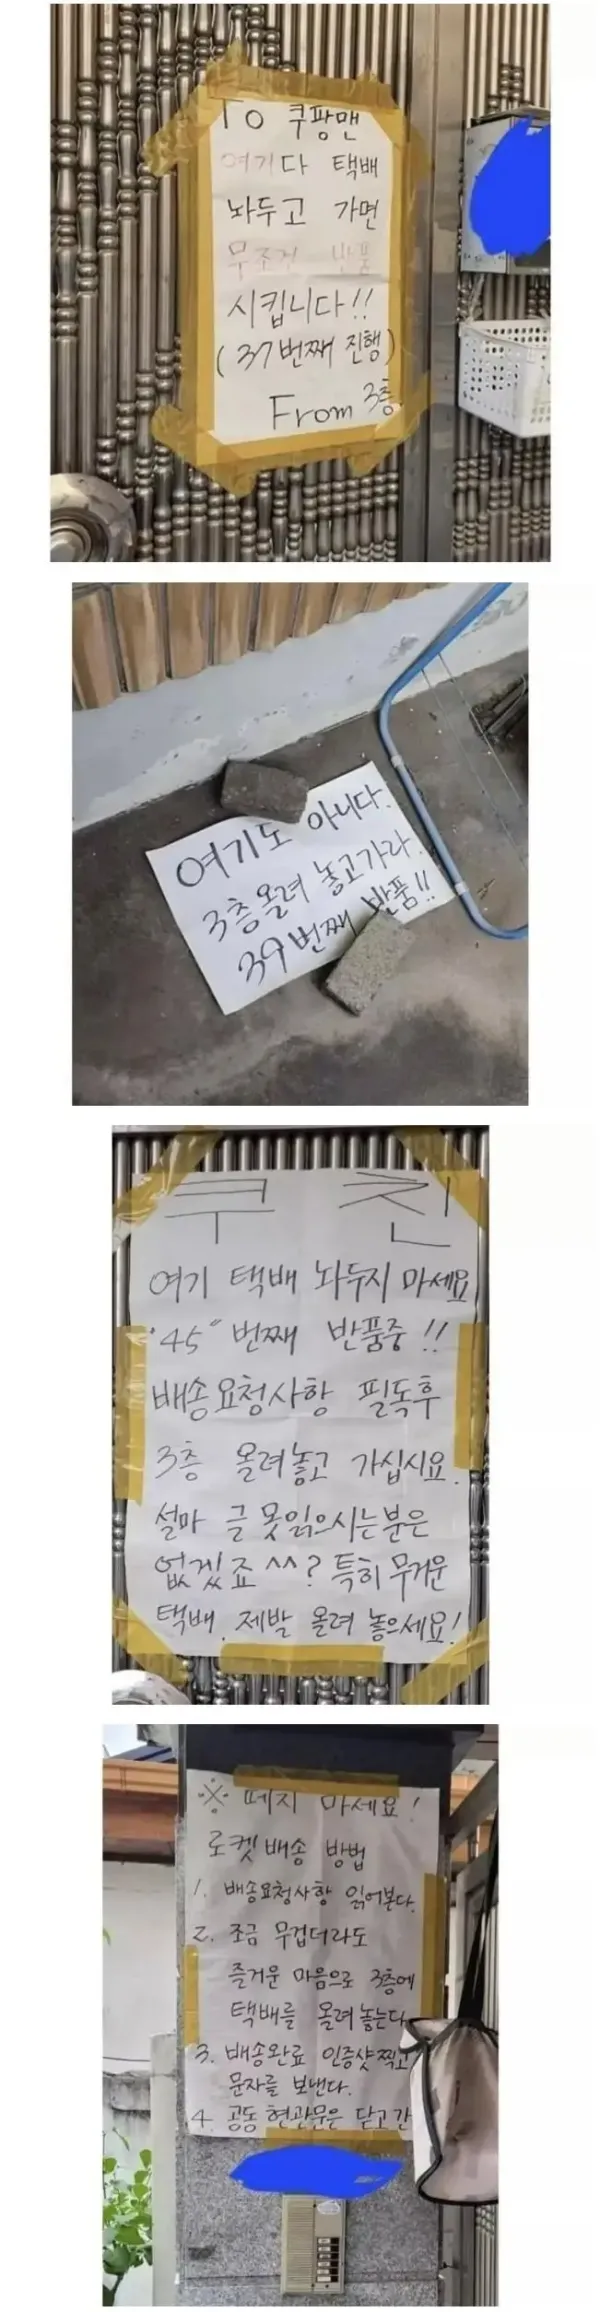 To 쿠팡맨
여기다 택배
놔두고 가면
무조건 반품
시킵니다!!
(37번째 진행)
From 3층
여기도 아니다.
3층올려 놓고가라.
39번째 반품!!
쿠 친
여기 택배 놔두지 마세요
"45" 번째 반품중!!
배송요청사항 필독후
3층 올려놓고 가십시요.
설마 글 못읽으시는분은
없겠죠^^? 특히 무거운
택배. 제발 올려 놓으세요!
※ 떼지 마세요!
로켓배송 방법
1. 배송요청사항 읽어본다.
2. 조금 무겁더라도
즐거운 마음으로 3층에
택배를 올려놓는다
3. 배송완료 인증샷찍고
문자를 보낸다.
4. 공동현관문은 닫고간